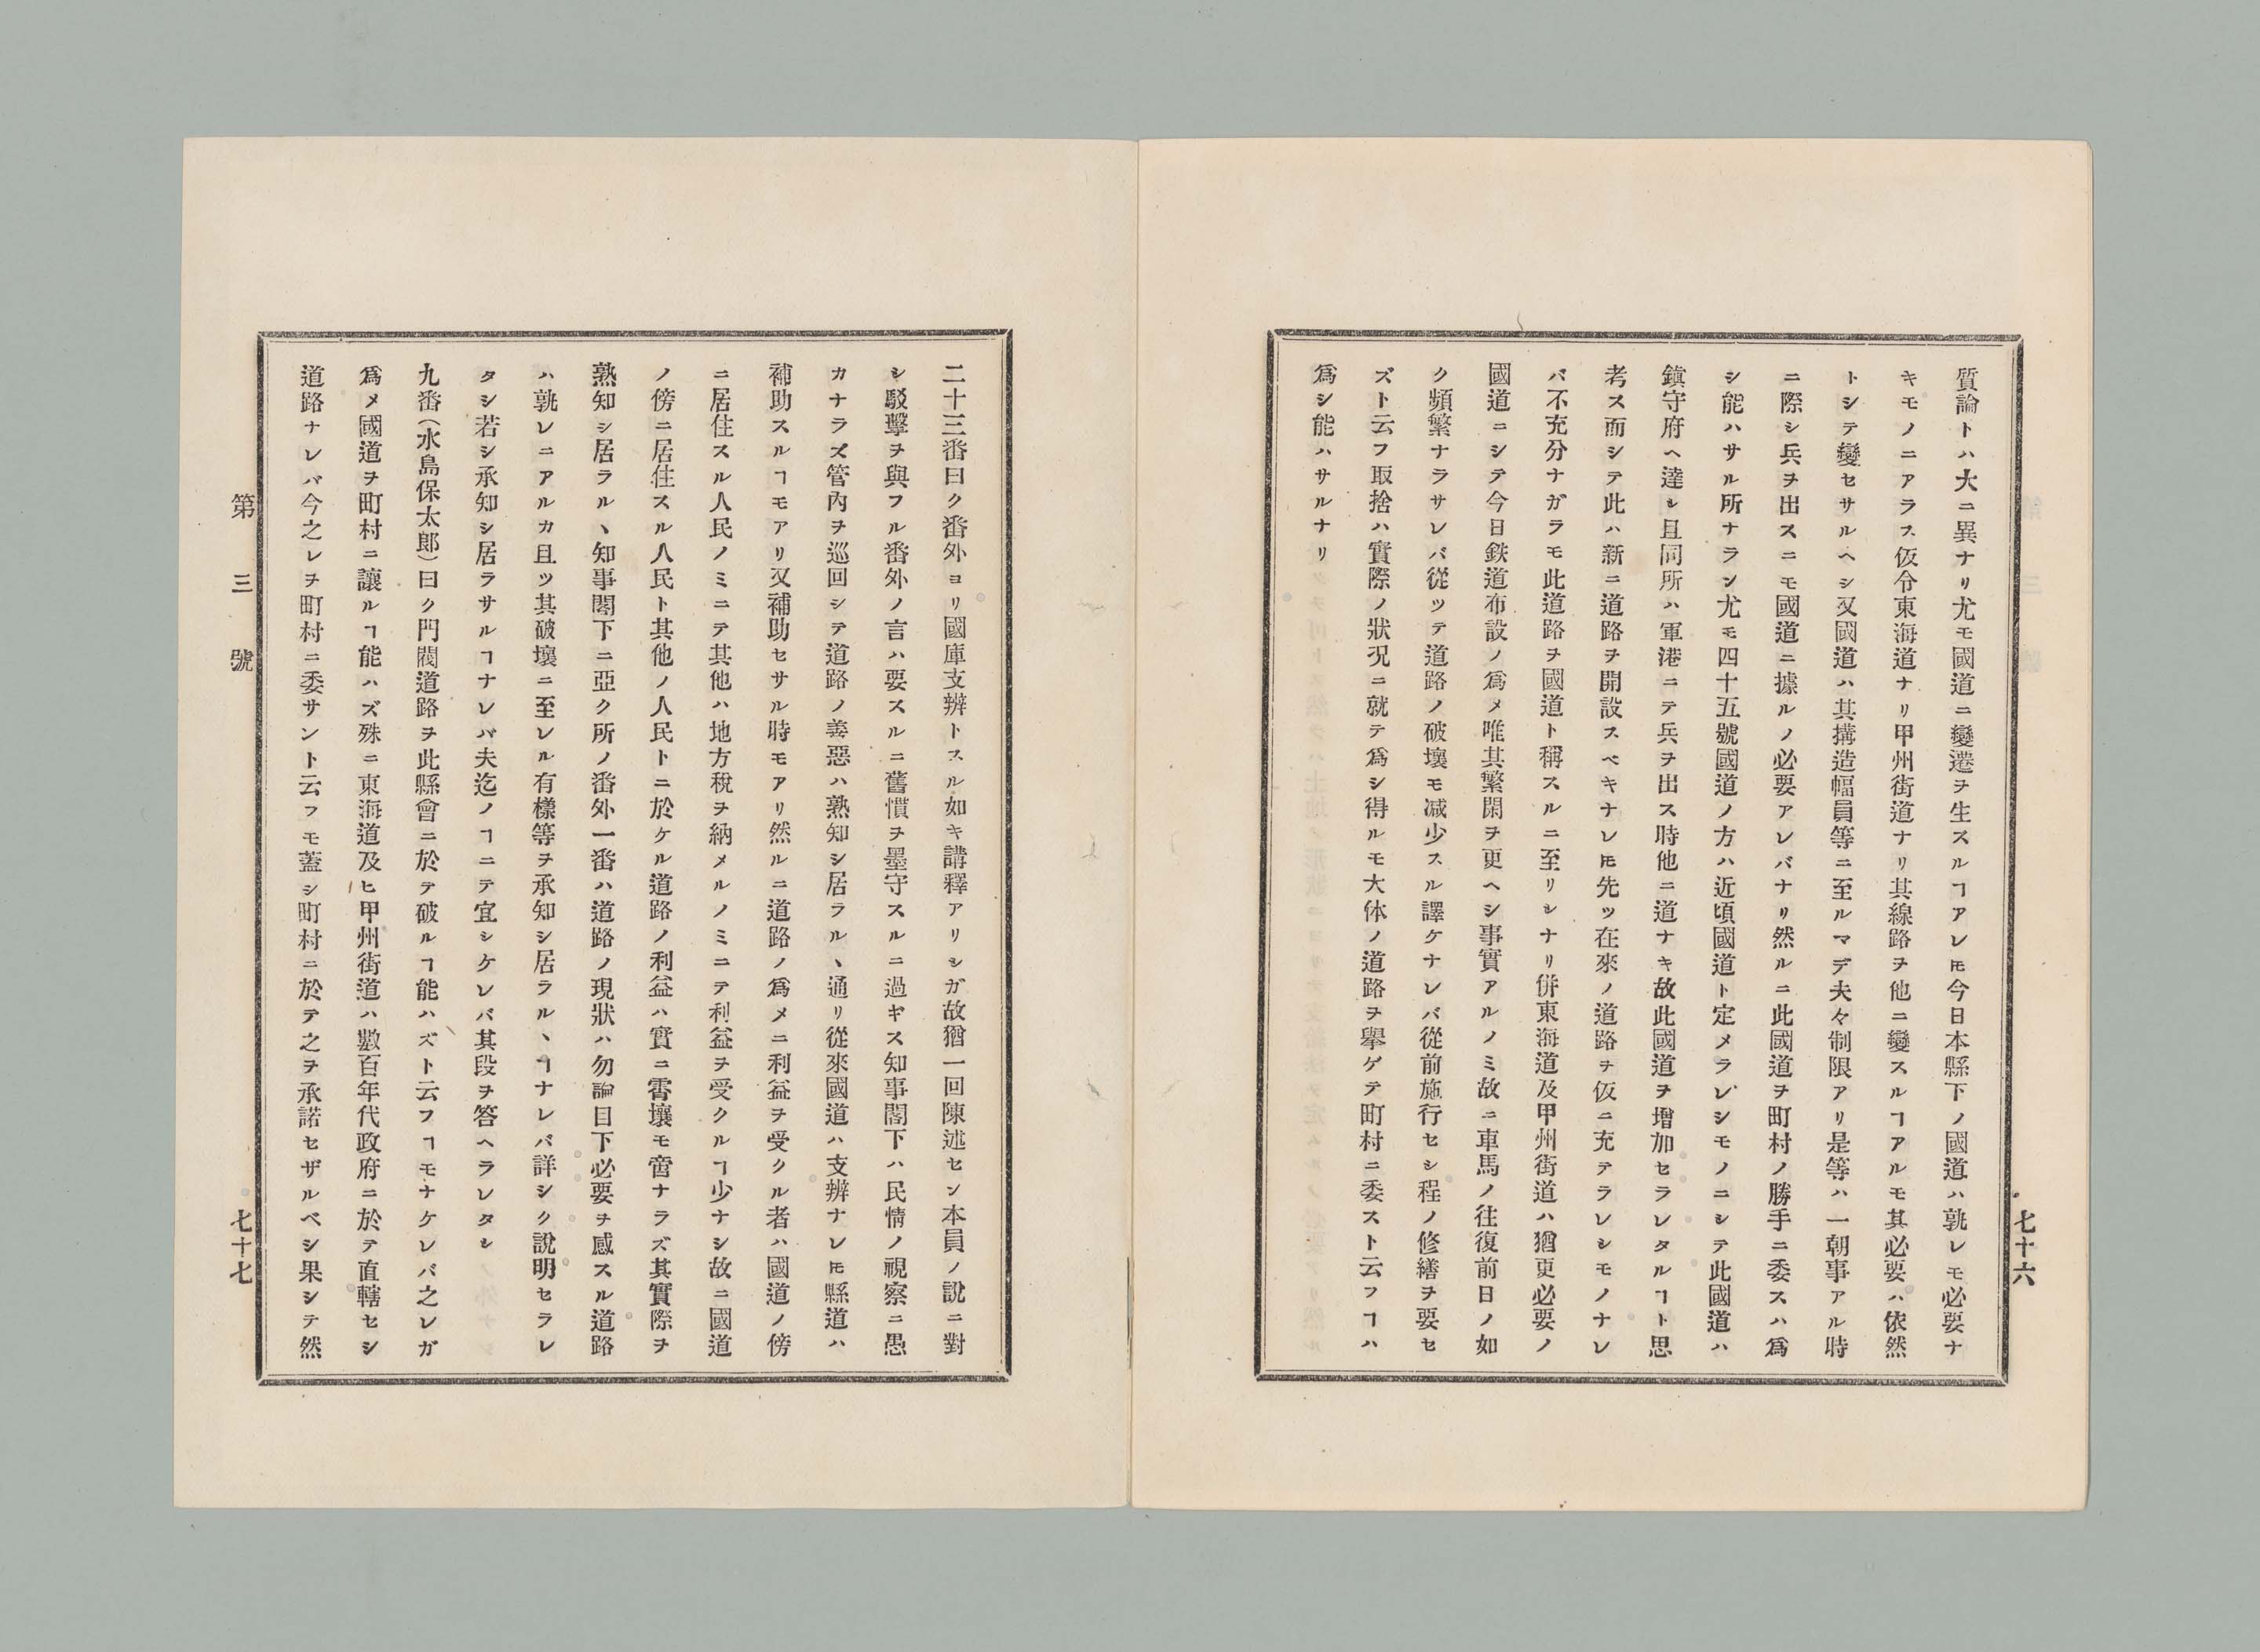 七十六
質論トハ大ニ異ナリ尤モ國道ニ變遷ヲ生スルヿアレ𪜈今日本縣下ノ國道ハ孰レモ必要ナ
キモノニアラス仮令東海道ナリ甲州街道ナリ其線路ヲ他ニ變スルヿアルモ其必要ハ依然
トシテ變セサルヘシ又國道ハ其搆造幅員等ニ至ルマデ夫々制限アリ是等ハ一朝事アル時
ニ際シ兵ヲ出スニモ國道ニ據ルノ必要アレバナリ然ルニ此國道ヲ町村ノ勝手ニ委スハ爲
シ能ハサル所ナラン尤モ四十五號國道ノ方ハ近頃國道ト定メラレシモノニシテ此國道ハ
鎭守府ヘ達シ且同所ハ軍港ニテ兵ヲ出ス時他ニ道ナキ故此國道ヲ增加セラレタルヿト思
考ス而シテ此ハ新ニ道路ヲ開設スベキナレ𪜈先ツ在來ノ道路ヲ仮ニ充テラレシモノナレ
バ不充分ナガラモ此道路ヲ國道ト稱スルニ至リシナリ併東海道及甲州街道ハ猶更必要ノ
國道ニシテ今日鉄道布設ノ爲メ唯其繁閑ヲ更ヘシ事實アルノミ故ニ車馬ノ往復前日ノ如
ク頻繁ナラサレバ從ツテ道路ノ破壞モ减少スル譯ケナレバ從前施行セシ程ノ修繕ヲ要セ
ズト云フ取捨ハ實際ノ狀況ニ就テ爲シ得ルモ大体ノ道路ヲ擧ゲテ町村ニ委スト云フヿハ
爲シ能ハサルナリ
二十三番曰ク番外ヨリ國庫支辨トスル如キ講釋アリシガ故猶一回陳述セン本員ノ說ニ對
シ駁擊ヲ與フル番外ノ言ハ要スルニ舊慣ヲ墨守スルニ過キス知事閣下ハ民情ノ視察ニ愚
カナラズ管内ヲ巡回シテ道路ノ善惡ハ熟知シ居ラルヽ通リ從來國道ハ支辨ナレ𪜈縣道ハ
補助スルヿモアリ又補助セサル時モアリ然ルニ道路ノ爲メニ利益ヲ受クル者ハ國道ノ傍
ニ居住スル人民ノミニテ其他ハ地方稅ヲ納メルノミニテ利益ヲ受クルヿ少ナシ故ニ國道
ノ傍ニ居住スル人民ト其他ノ人民トニ於ケル道路ノ利益ハ實ニ霄壤モ啻ナラズ其實際ヲ
熟知シ居ラルヽ知事閣下ニ亞ク所ノ番外一番ハ道路ノ現狀ハ勿論目下必要ヲ感スル道路
ハ孰レニアルカ且ツ其破壞ニ至レル有樣等ヲ承知シ居ラルヽヿナレバ詳シク說明セラレ
タシ若シ承知シ居ラサルヿナレバ夫迄ノヿニテ宜シケレバ其段ヲ答ヘラレタシ
九番(水島保太郎)曰ク門閥道路ヲ此縣會ニ於テ破ルヿ能ハズト云フヿモナケレバ之レガ
爲メ國道ヲ町村ニ讓ルヿ能ハズ殊ニ東海道及ヒ甲州街道ハ數百年代政府ニ於テ直轄セシ
道路ナレバ今之レヲ町村ニ委サント云フモ蓋シ町村ニ於テ之ヲ承諾セザルベシ果シテ然
第三號
七十七